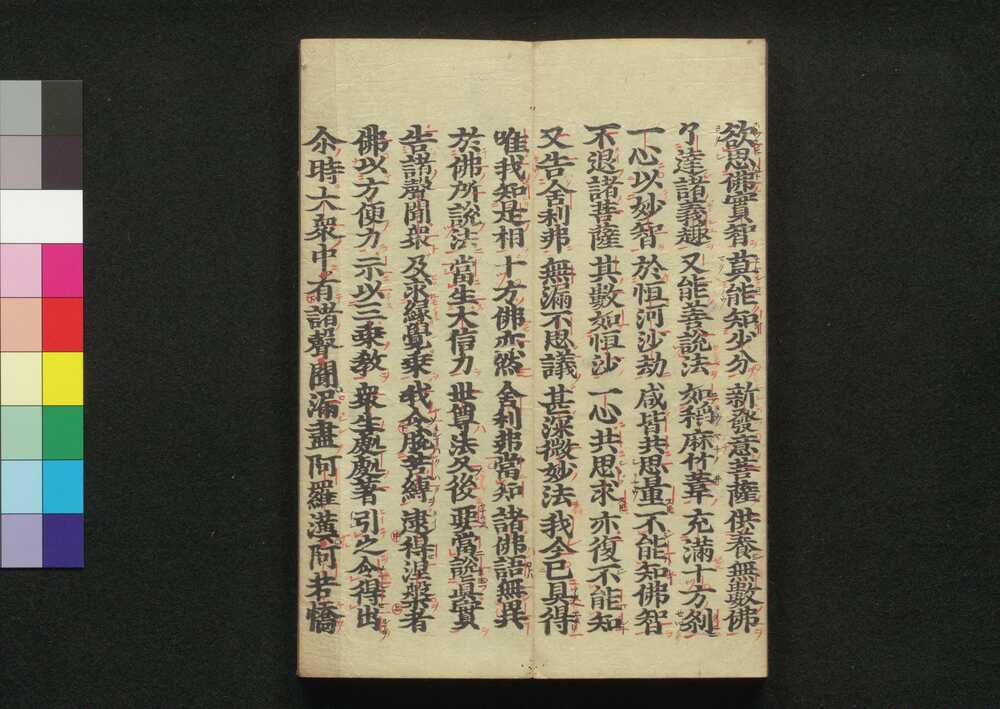 欲思佛實智 莫能知少分 新發意菩薩 供養無數佛
了達諸義趣 又能善說法 如稻麻竹葦 充滿十方刹
一心以妙智 於恒河沙劫 咸皆共思量 不能知佛智
不退諸菩薩 其數如恒沙 一心共思求 亦復不能知
又告舍利弗 無漏不思議 甚深微妙法 我今已具得
唯我知是相 十方佛亦然 舍利弗當知 諸佛語無異
於佛所說法 當生大信力 世尊法久後 要當說眞實
告諸聲聞衆 及求緣覺乘 我令脫苦縛 逮得涅槃者
佛以方便力 示以三乘教 衆生處處著 引之令得出
尒時大衆中有諸聲聞漏盡阿羅漢阿若憍